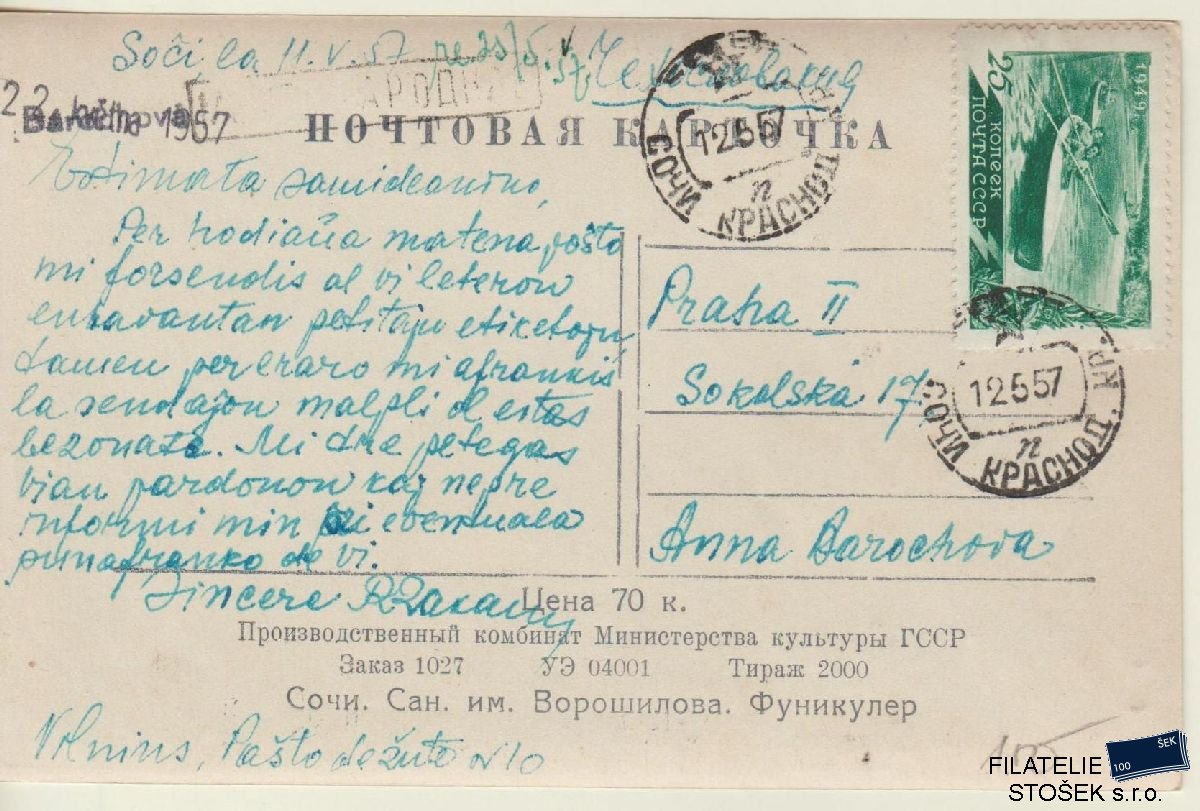 Soĉi, la 11. V. 57 re 23/5. 57.
Чехословакия
МЕЖДУНАРОДНОЕ
22. května 1957
Barochová
ПОЧТОВАЯ КАРТОЧКА
СОЧИ КРАСНОД.
12 5 57
п
25
КОПЕЕК
ПОЧТА СССР
1949
Estimata samideanino,
Per hodiaŭa matena poŝto
mi forsendis al vi leteron
enhavantan petitajn etiketojn,
tamen per eraro mi afrankis
la sendaĵon malpli ol estas
bezonate. Mi do petegas
vian pardonon kaj nepre
informi min pri eventuala
punafranko de vi.
Sincere
Praha II
Sokolská 17.
Anna Barochova
СОЧИ КРАСНОД. КР.
12 5 57
п
Цена 70 к.
Производственный комбинат Министерства культуры ГССР
Заказ 1027 УЭ 04001 Тираж 2000
Сочи. Сан. им. Ворошилова. Фуникулер
Vilnius, Pašto dėžutė N 10
FILATELIE
STOŠEK s.r.o.
100 ŠEK